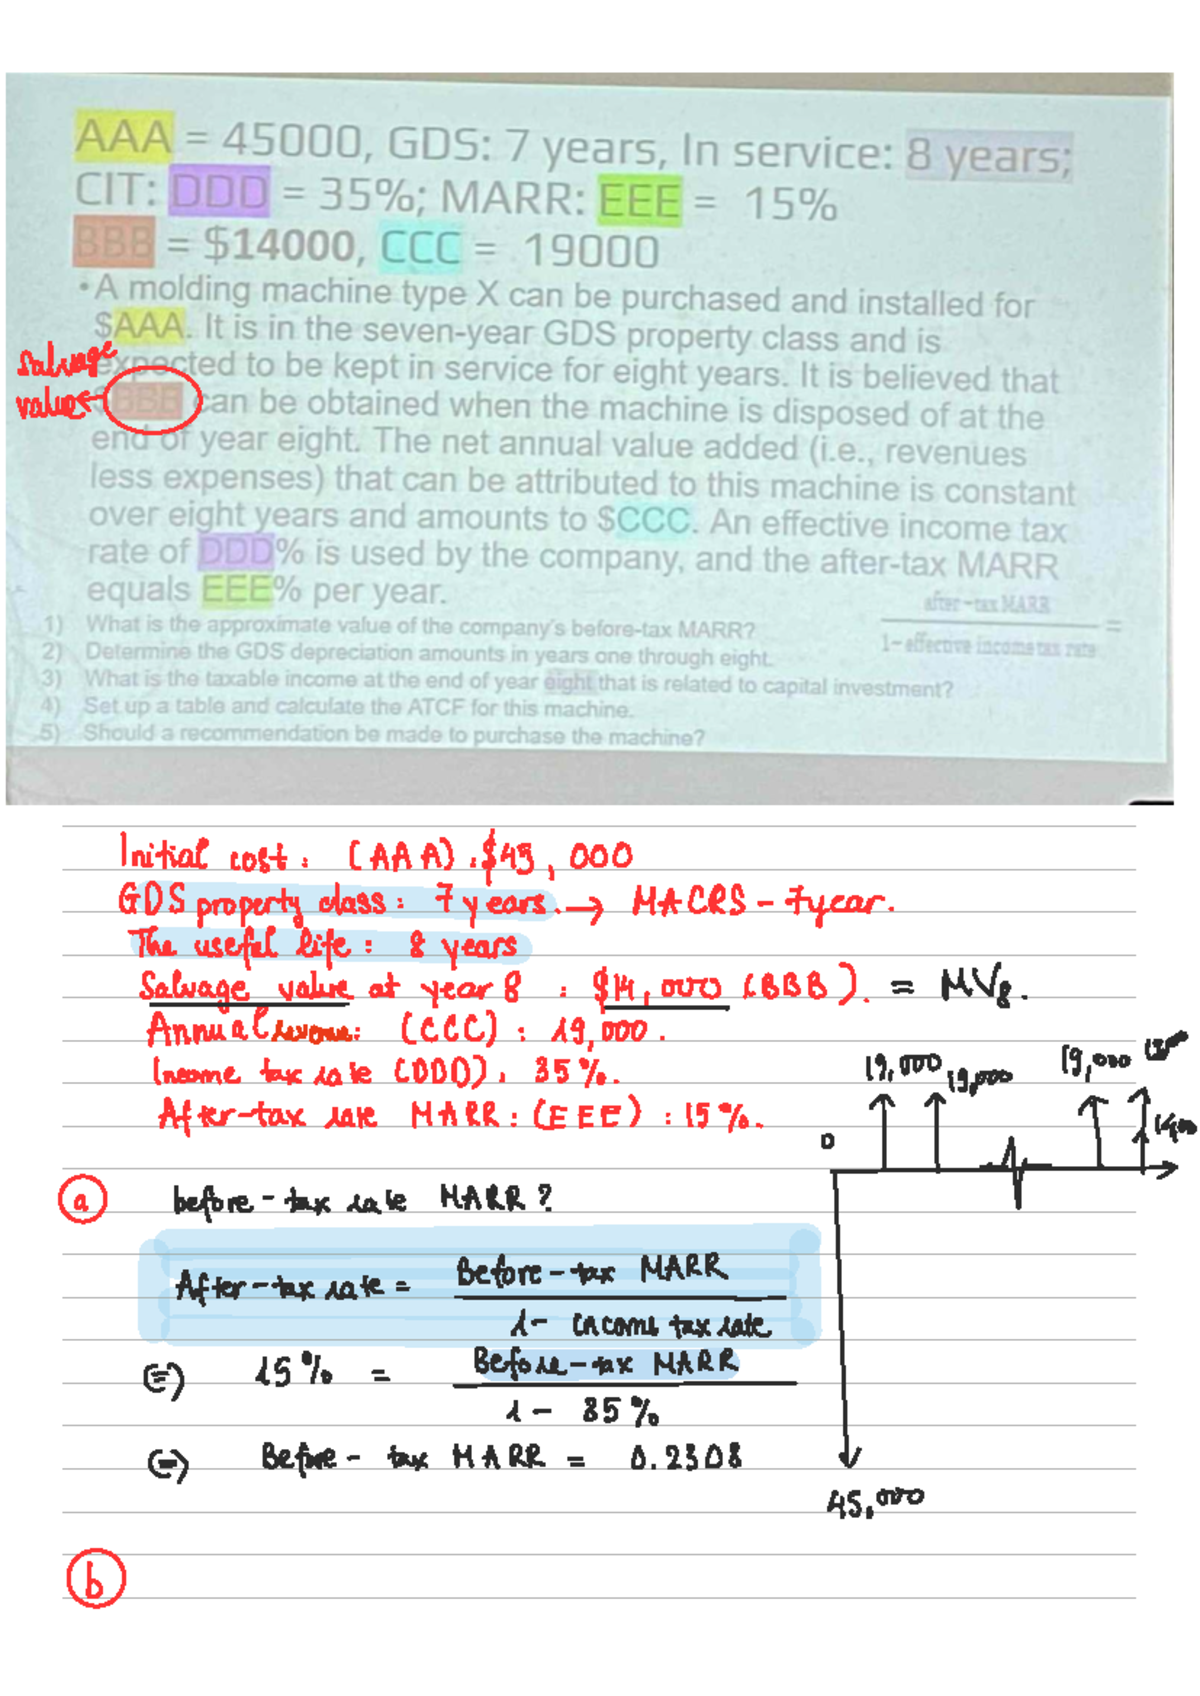 AAA = 45000, GDS: 7 years, In service: 8 years;
CIT: DDD = 35%; MARR: EEE = 15%
BBB = $14000, CCC = 19000
• A molding machine type X can be purchased and installed for
$AAA. It is in the seven-year GDS property class and is
expected to be kept in service for eight years. It is believed that
Salvage
value
$BBB can be obtained when the machine is disposed of at the
end of year eight. The net annual value added (i.e., revenues
less expenses) that can be attributed to this machine is constant
over eight years and amounts to $CCC. An effective income tax
rate of DDD% is used by the company, and the after-tax MARR
equals EEE% per year.
after-tax MARR
1- effective income tax rate =
1) What is the approximate value of the company's before-tax MARR?
2) Determine the GDS depreciation amounts in years one through eight.
3) What is the taxable income at the end of year eight that is related to capital investment?
4) Set up a table and calculate the ATCF for this machine.
5) Should a recommendation be made to purchase the machine?
Initial cost: (AAA): $45,000
GDS property class: 7 years. → MACRS - 7year.
The useful life: 8 years
Salvage value at year 8 : $14,000 (BBB). = MV8.
Annual revenue: (CCC): 19,000.
Income tax rate (DDD): 35%.
After-tax rate MARR: (EEE): 15%.
19,000 19,000 19,000
0
45,000
a before-tax rate MARR?
After-tax rate = Before-tax MARR
1- income tax rate
(=) 15% = Before-tax MARR
1 - 35%
(=) Before-tax MARR = 0.2308
b